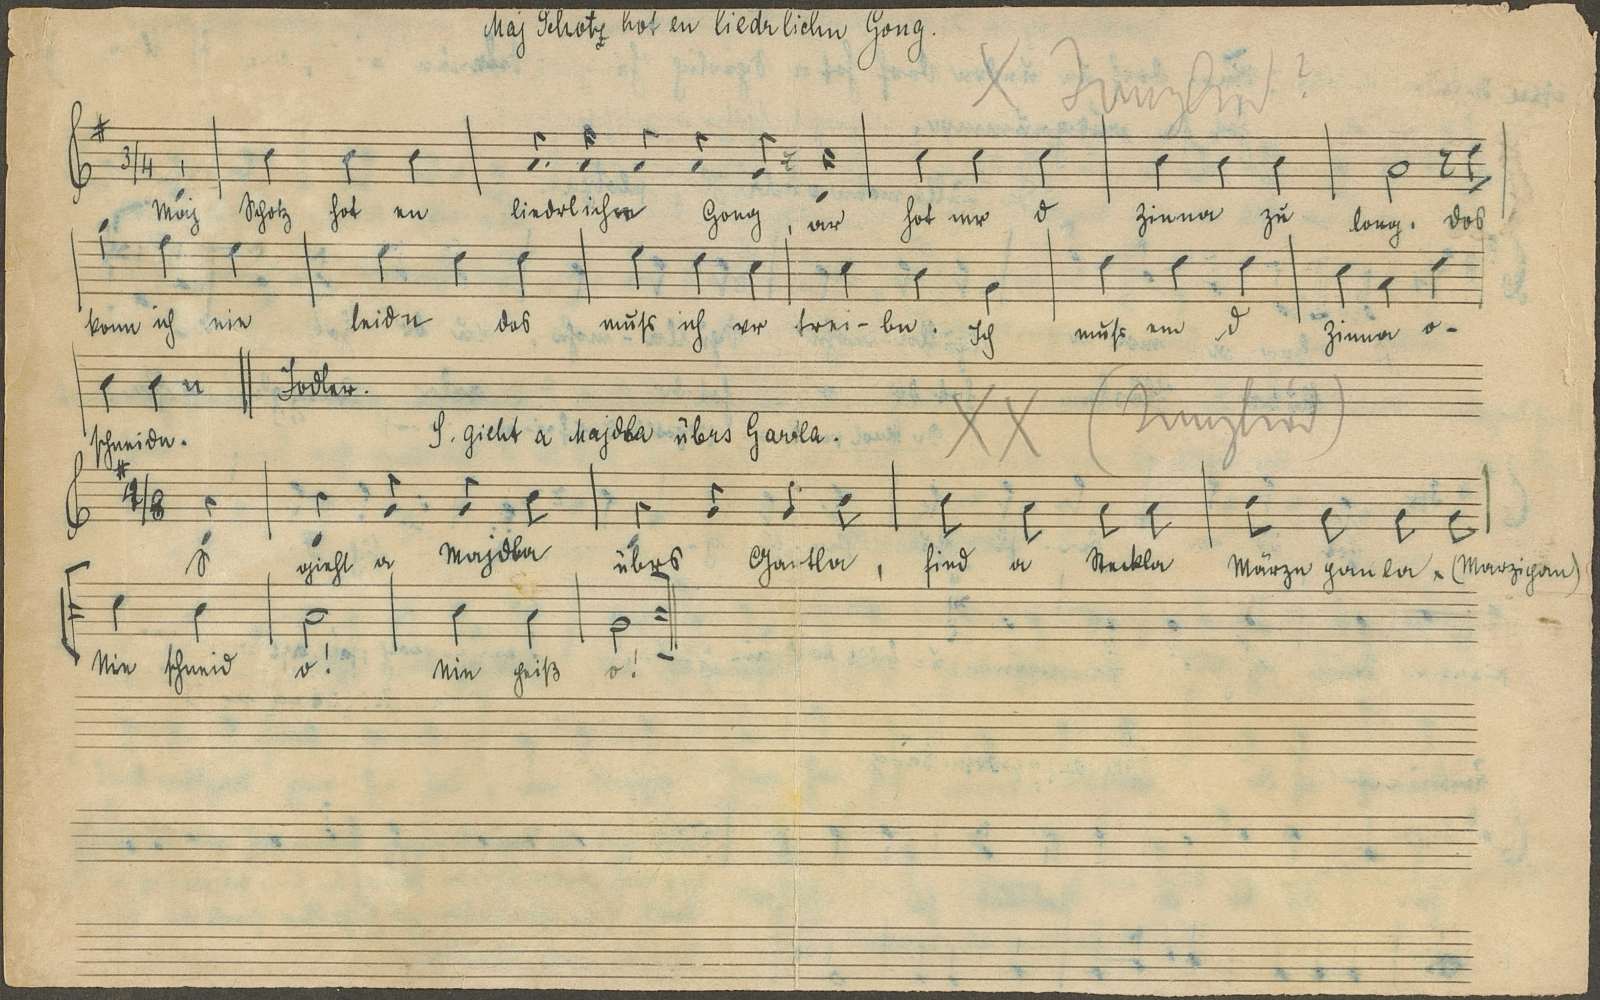 Maj Schotz hot en liedrlichn Gong.
X Tanzlied ?
3/4
Maj Schotz hot en liedrlichn Gong, ar hot mr d Zinna zu long. das
konn ich nie leidn das muss ich vr trei-bn. Ich muss em d Zinna o-
Jodler.
schneidn.
S. gieht a Majdla übrs Gartla.
XX (Tanzlied)
4/8
S gieht a Majdla übrs Gartla, find a Steckla Märzn panla. (Marzipan)
Nie schneid o! Nie peiß o!